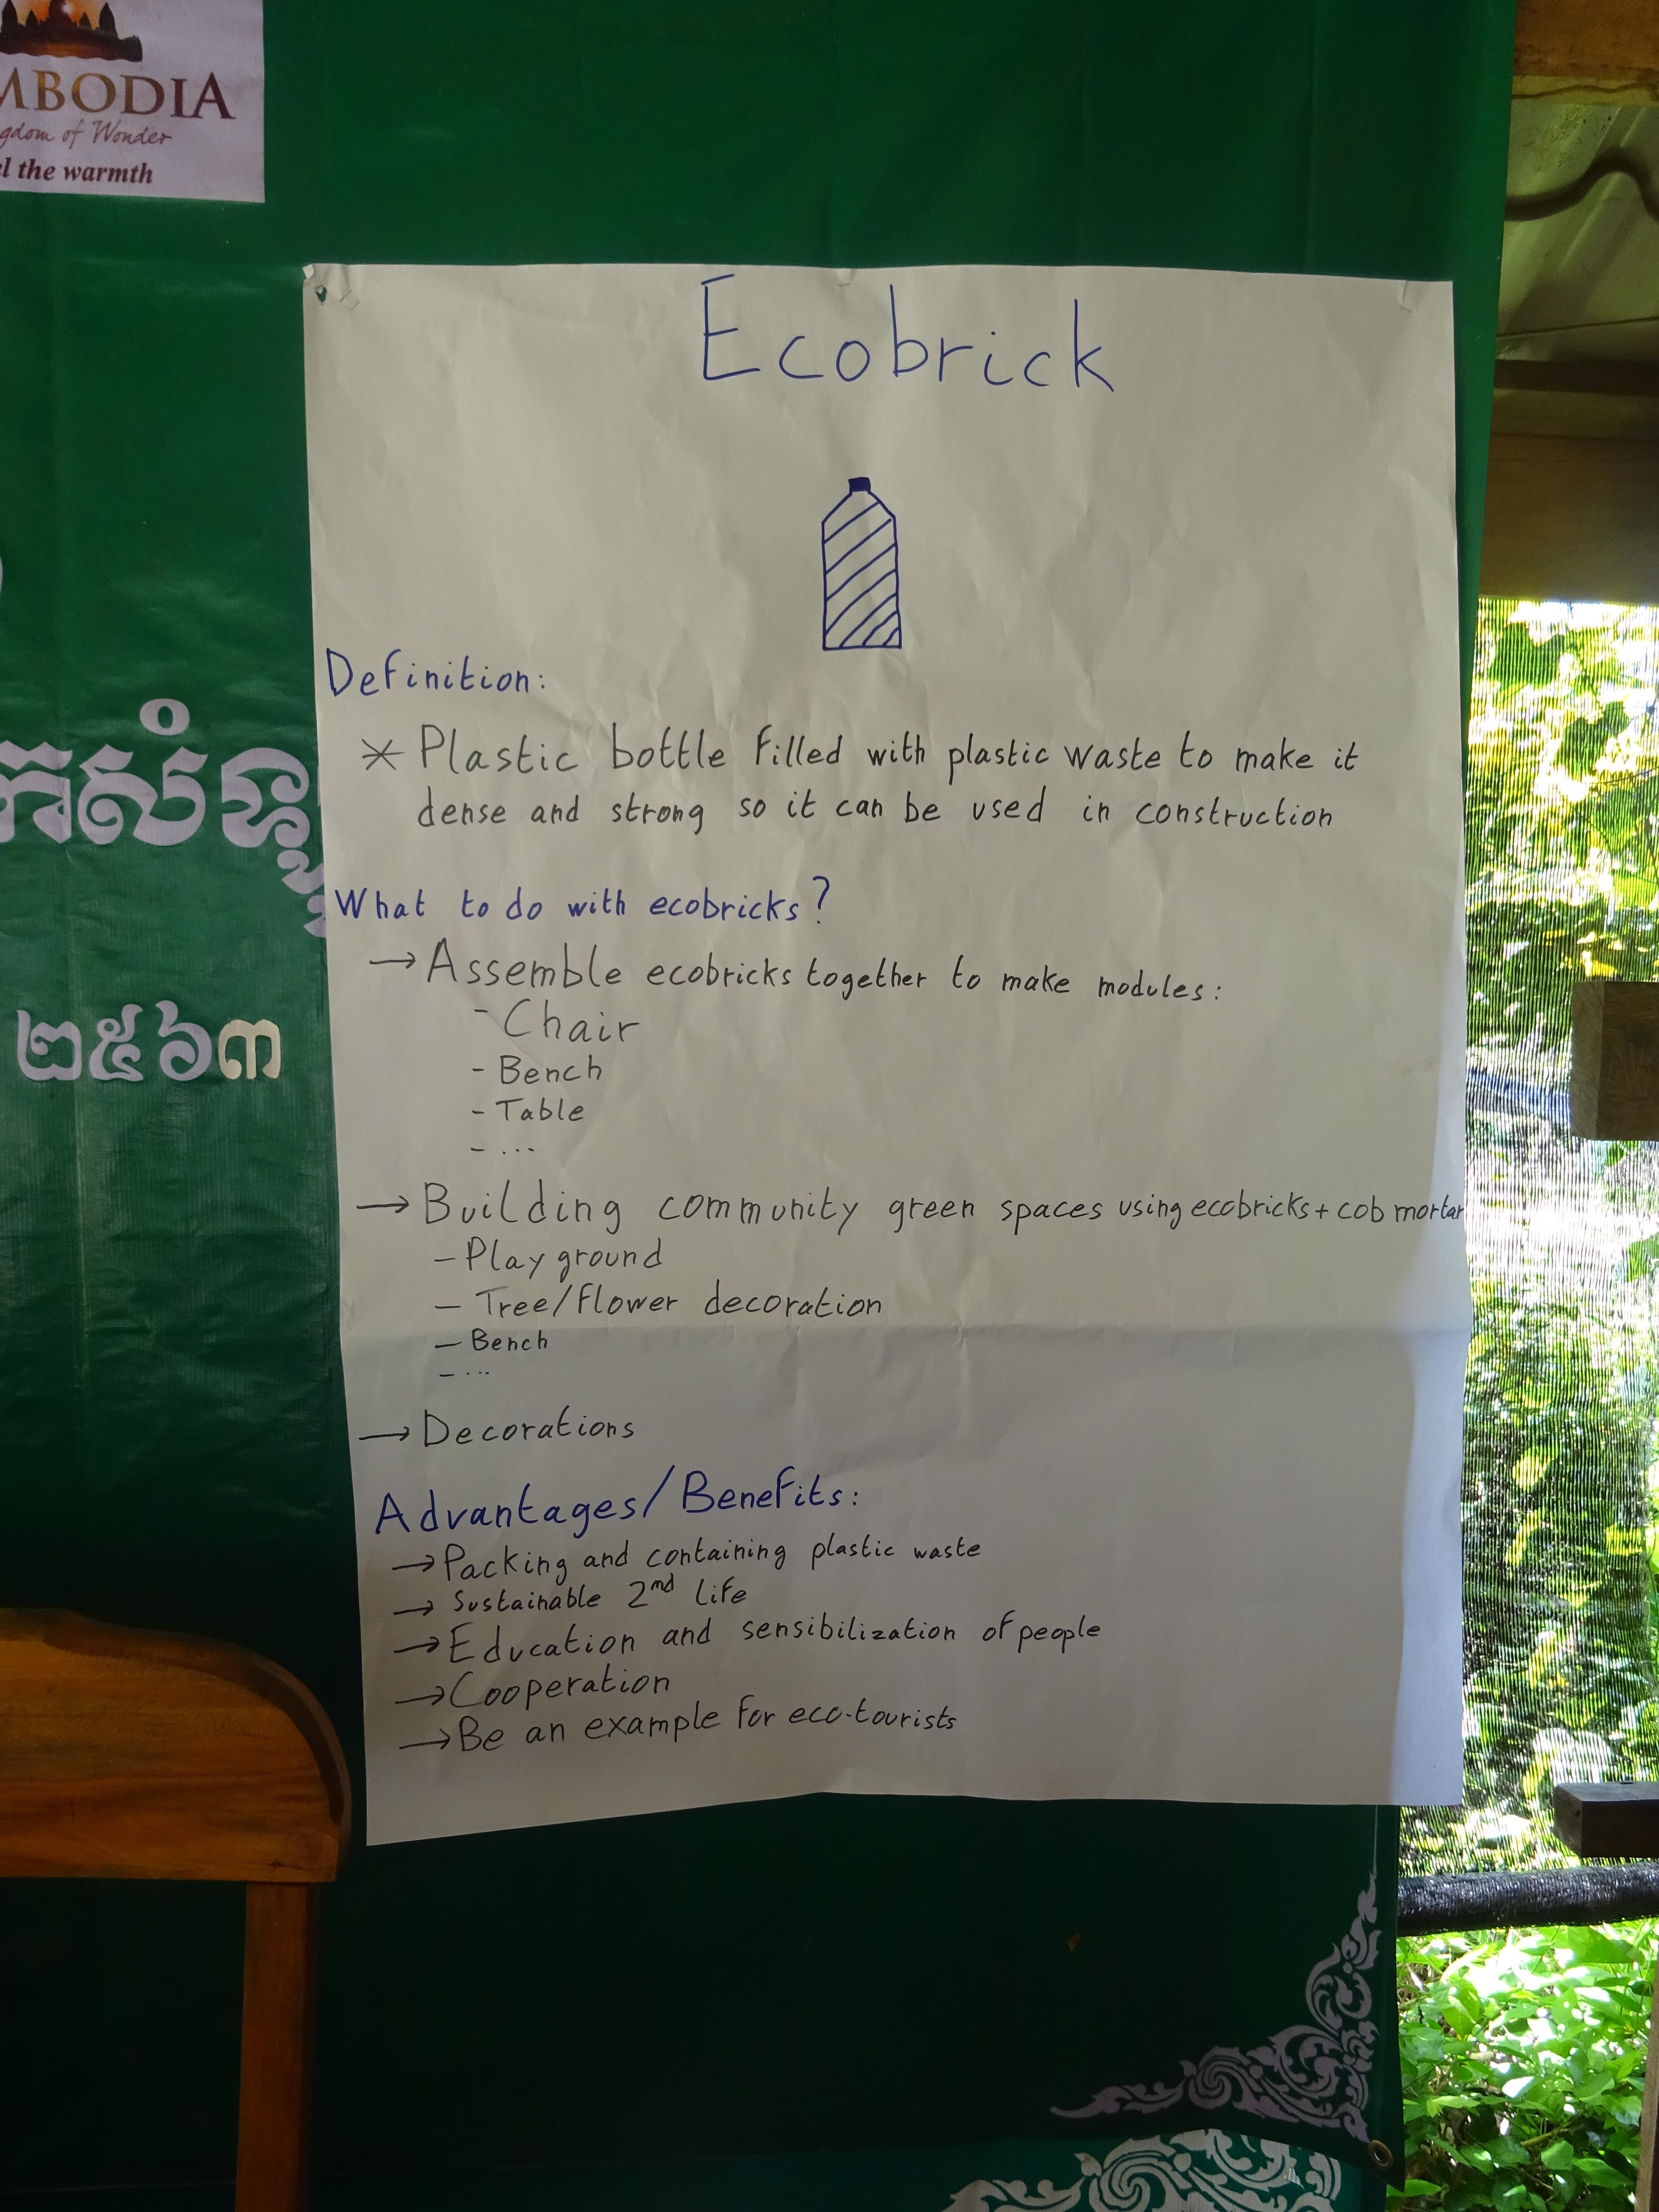 MBODIA
gdom of Wonder
l the warmth
Ecobrick
Definition:
* Plastic bottle filled with plastic waste to make it
dense and strong so it can be used in construction
What to do with ecobricks?
→ Assemble ecobricks together to make modules:
- Chair
- Bench
- Table
- ...
→ Building community green spaces using ecobricks + cob mortar
- Play ground
- Tree/flower decoration
- Bench
- ...
→ Decorations
Advantages/Benefits:
→ Packing and containing plastic waste
→ Sustainable 2nd life
→ Education and sensibilization of people
→ Cooperation
→ Be an example for eco-tourists
២៥៦៣